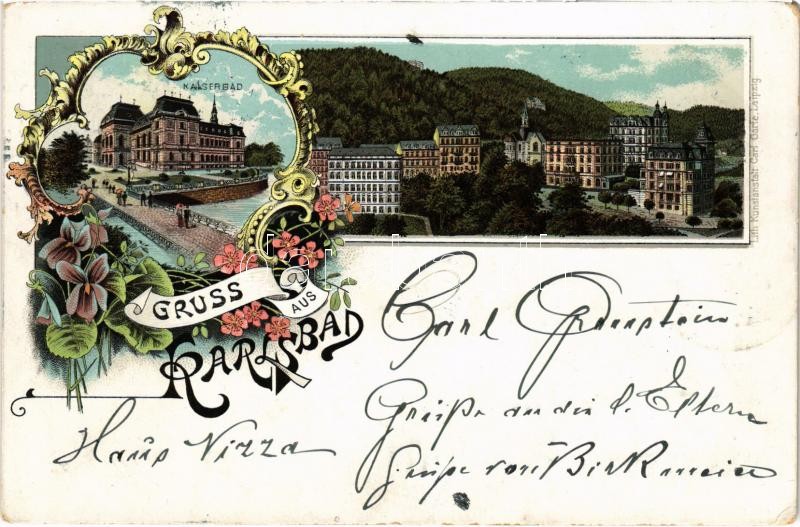 KAISERBAD
GRUSS
AUS
KARLSBAD
Lith. Kunstanstalt Carl Garte, Leipzig
Carl Grünstein
Grüße an die l. Eltern
Grüße von
Haus Nizza